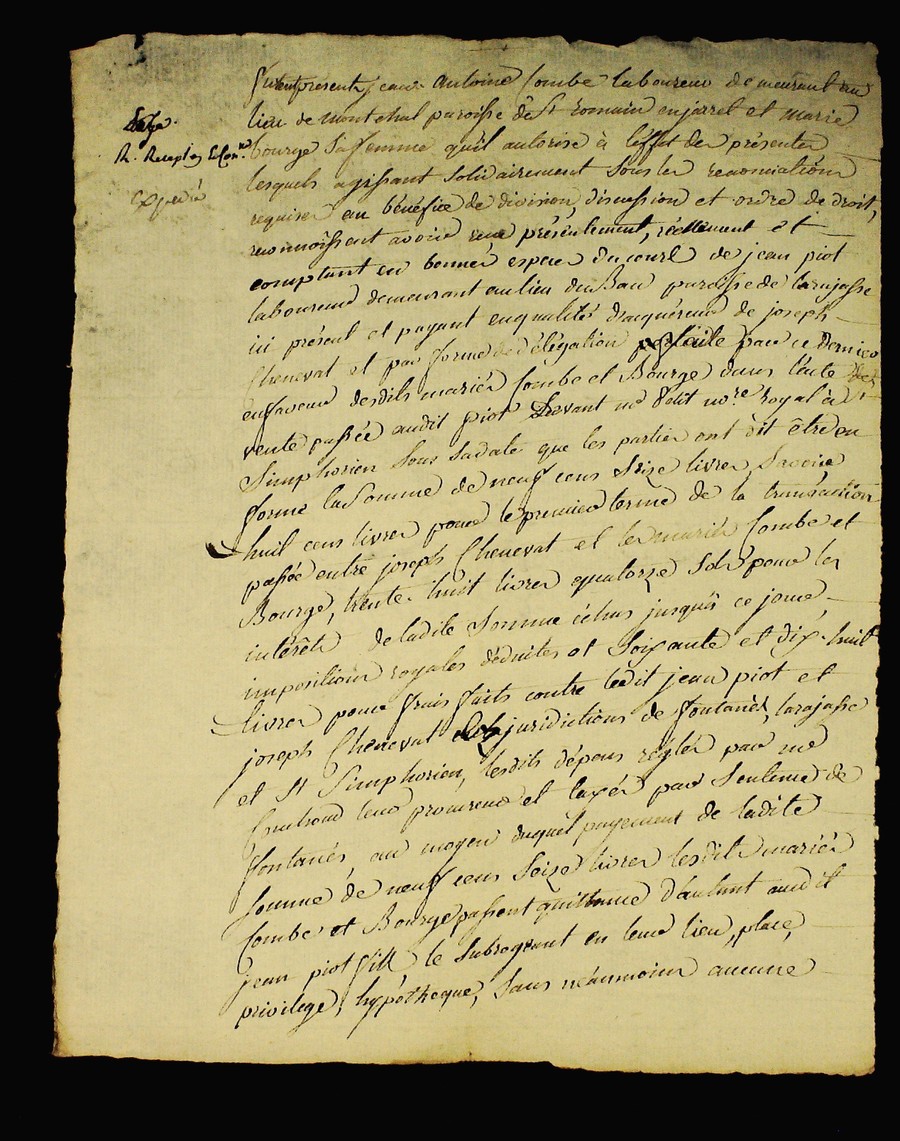 furent présents jean antoine Combe laboureur demeurant au
lieu de montchal paroisse de St romain en jarret et marie
bourge Sa femme qu'il autorise à l'effet des présentes
lesquels agissant solidairement sous les renonciations
requises au bénéfice de division, discussion et ordre de droit,
reconnoissent avoir reçu présentement, réellement et
comptant en bonnes espèces du cours de jean piot
laboureur demeurant au lieu du Bau paroisse de larajasse
ici présent et payant en qualité d'acquéreur de joseph
Chenevat et par forme de délégation parfaite par ce dernier
en faveur desdits mariés Combe et Bourge dans l'acte de
vente passée audit piot Devant me petit nore royal à St
Simphorien sous sa date que les parties ont dit être en
forme la Somme de neuf cens Seize livres, Savoir
huit cens livres pour le premier terme de la transaction
passée entre joseph Chenevat et les mariés Combe et
Bourge, trente-huit livres quatorze Sols pour les
intérêts de ladite Somme échus jusqu'à ce jour,
impositions royales déduites et Soixante et dix-huit
livres pour frais faits contre ledit jean piot et
joseph Chenevat juridictions de fontanès, larajasse
et St Simphorien, lesdits dépens réglés par me
leur procureur et taxés par Sentence de
fontanès, au moyen duquel payement de ladite
Somme de neuf cens Seize livres lesdits mariés
Combe et Bourge passent quittance d'autant audit
jean piot le Subrogeant en leur lieu, place,
privilège, hypothèque, Sans néanmoins aucune
expédié